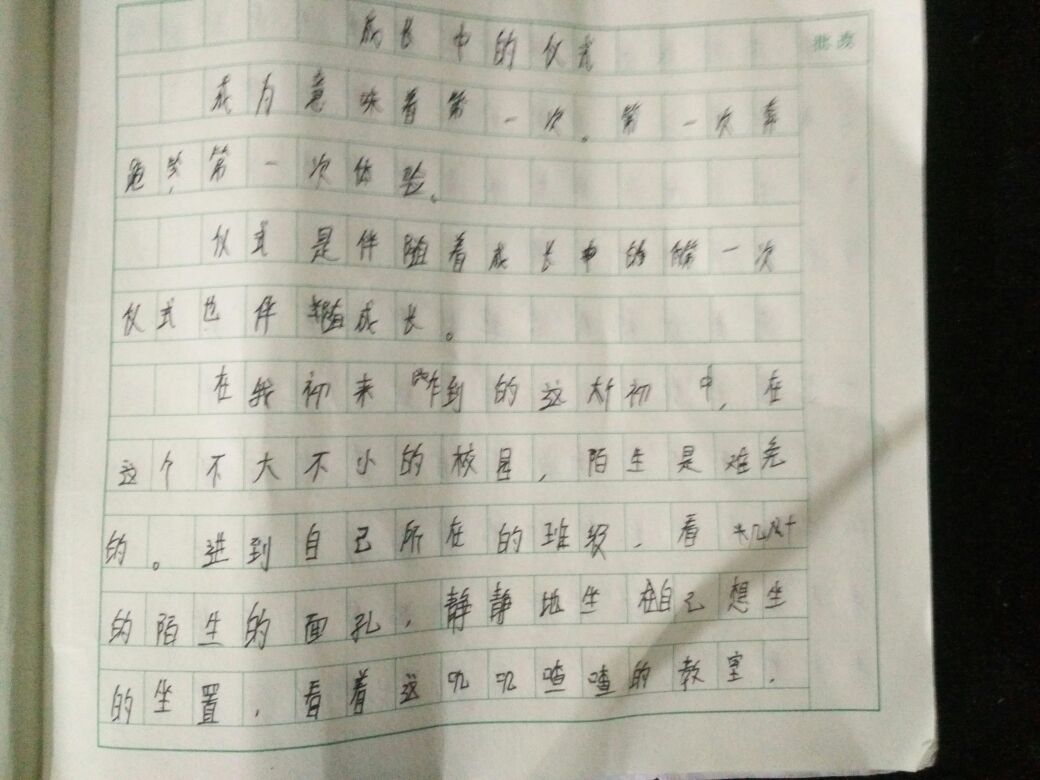 成长中的仪式
批改
成为意味着第一次。第一次奔
跑,第一次体验。
仪式是伴随着成长中的第一次
仪式也伴随成长。
在我初来到的这所初中,在
这个不大不小的校园,陌生是难免
的。进到自己所在的班级,看
的陌生的面孔,静静地坐在自己想坐
的坐置,看着这叽叽喳喳的教室,